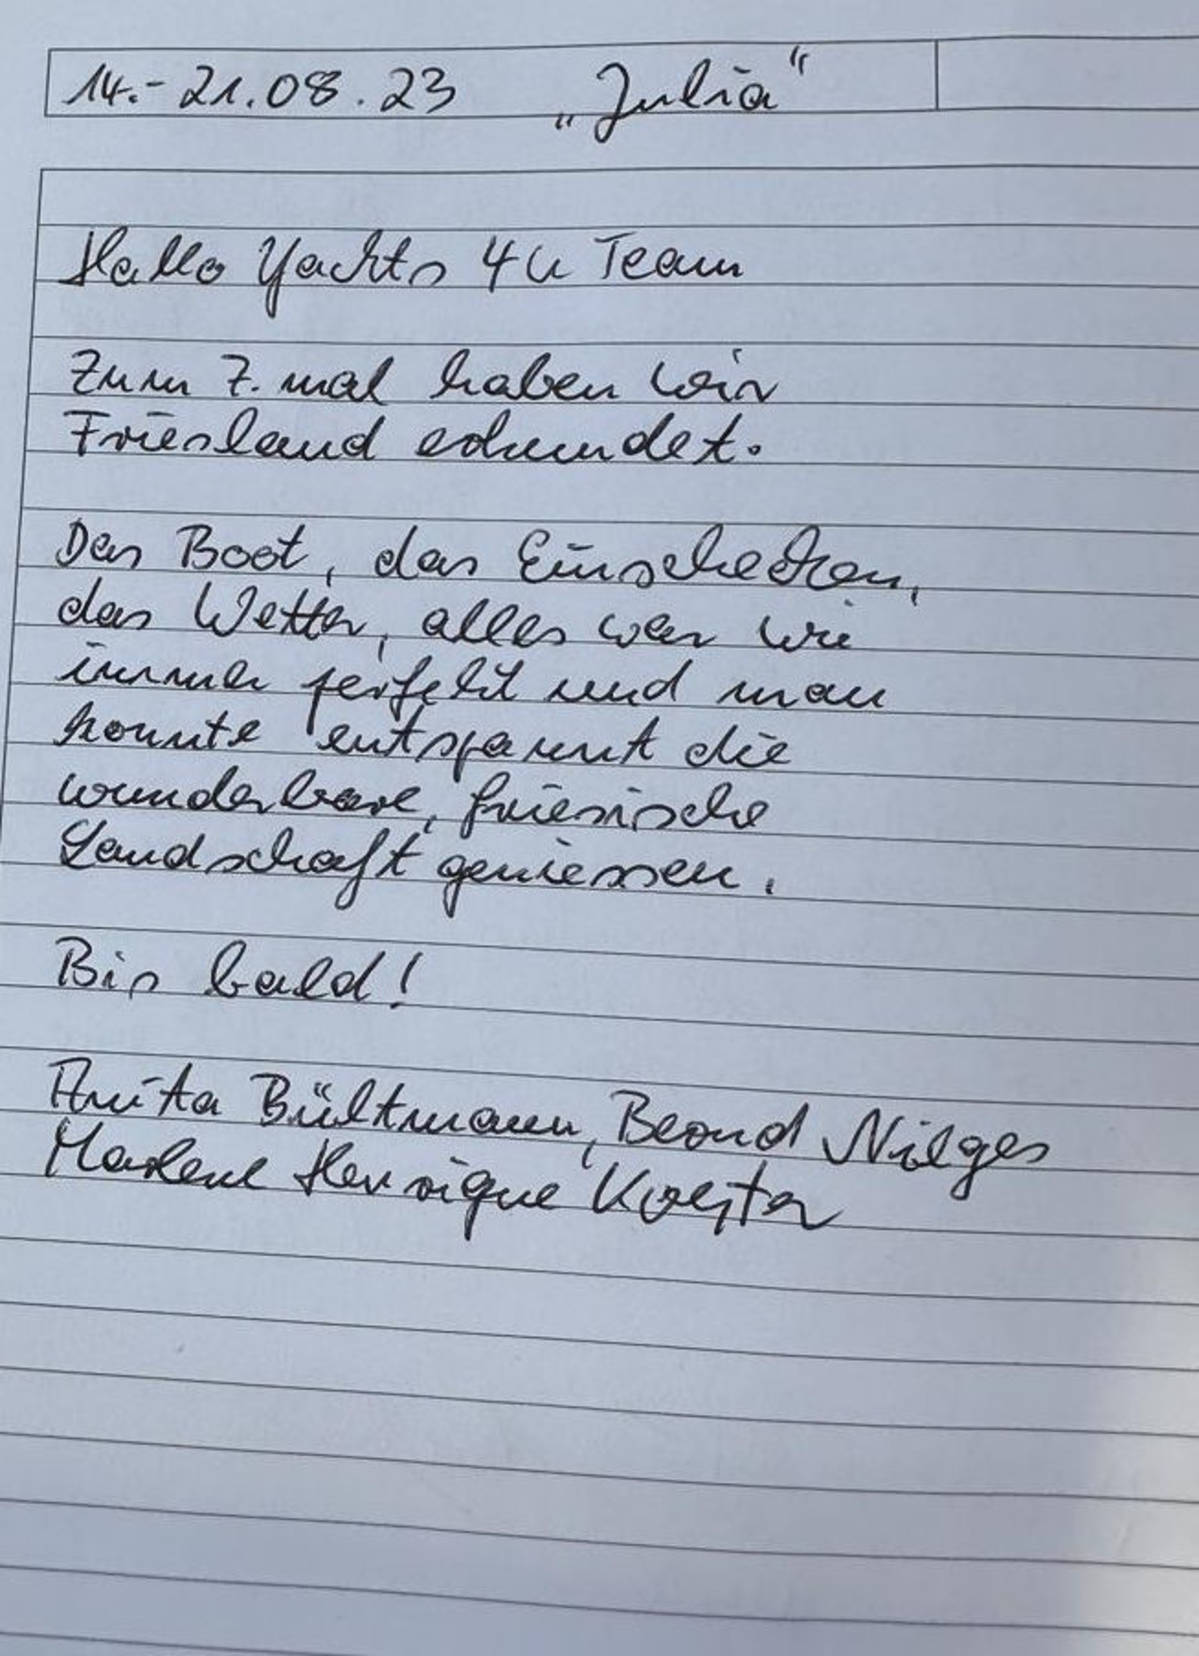 14.-21.08.23 „Julia“
Hallo Yachts 4u Team
Zum 7. mal haben wir
Friesland erkundet.
Das Boot, das Einschecken,
das Wetter, alles war wie
immer perfekt und man
konnte entspannt die
wunderbare, friesische
Landschaft geniessen.
Bis bald!
Anita Bültmann, Bernd Nilges
Marlene Henrique Koester